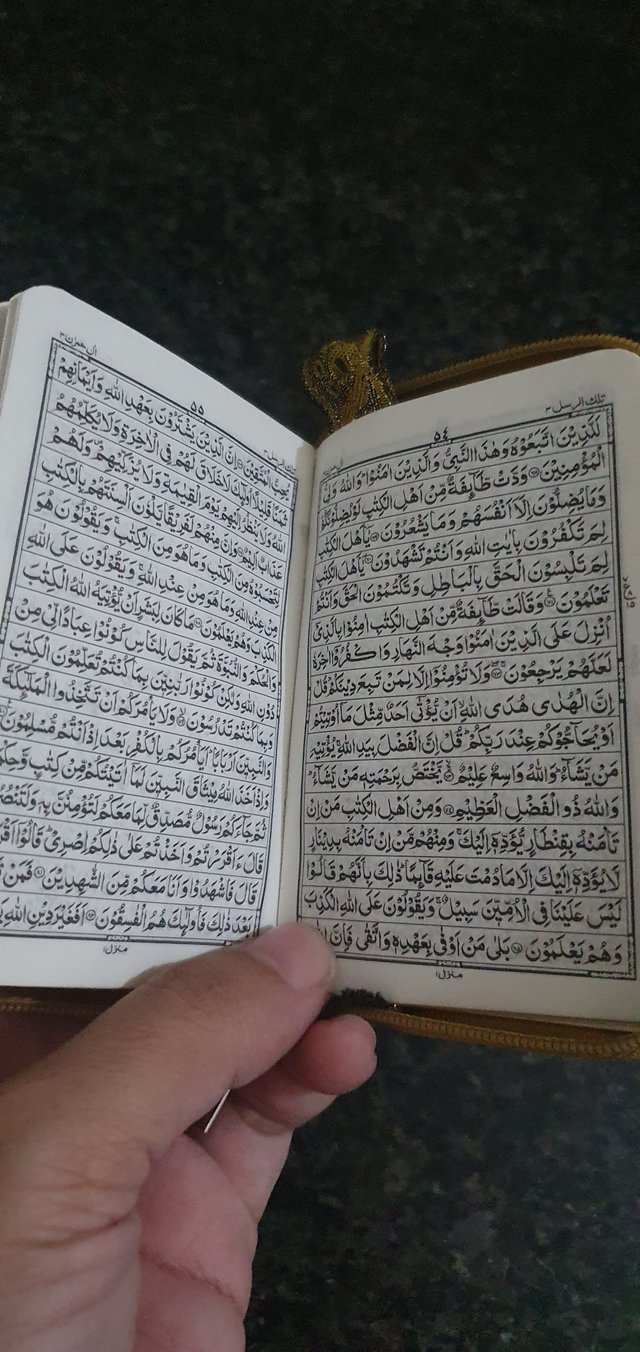 تلك الرسل ٣
٥٤
لَلَّذِيْنَ اتَّبَعُوْهُ وَهٰذَا النَّبِيُّ وَالَّذِيْنَ اٰمَنُوْا ؕ وَاللّٰهُ وَلِيُّ
الْمُؤْمِنِيْنَ ﴿٦٨﴾ وَدَّتْ طَّآئِفَةٌ مِّنْ اَهْلِ الْكِتٰبِ لَوْ يُضِلُّوْنَكُمْ
وَمَا يُضِلُّوْنَ اِلَّاۤ اَنْفُسَهُمْ وَمَا يَشْعُرُوْنَ ﴿٦٩﴾ يٰۤاَهْلَ الْكِتٰبِ
لِمَ تَكْفُرُوْنَ بِاٰيٰتِ اللّٰهِ وَاَنْتُمْ تَشْهَدُوْنَ ﴿٧٠﴾ يٰۤاَهْلَ الْكِتٰبِ
لِمَ تَلْبِسُوْنَ الْحَقَّ بِالْبَاطِلِ وَتَكْتُمُوْنَ الْحَقَّ وَاَنْتُمْ
تَعْلَمُوْنَ ﴿٧١﴾ وَقَالَتْ طَّآئِفَةٌ مِّنْ اَهْلِ الْكِتٰبِ اٰمِنُوْا بِالَّذِيْۤ
اُنْزِلَ عَلَى الَّذِيْنَ اٰمَنُوْا وَجْهَ النَّهَارِ وَاكْفُرُوْۤا اٰخِرَهٗ
لَعَلَّهُمْ يَرْجِعُوْنَ ﴿٧٢﴾ وَلَا تُؤْمِنُوْۤا اِلَّا لِمَنْ تَبِعَ دِيْنَكُمْ ؕ قُلْ
اِنَّ الْهُدٰى هُدَى اللّٰهِ ۙ اَنْ يُّؤْتٰۤى اَحَدٌ مِّثْلَ مَاۤ اُوْتِيْتُمْ
اَوْ يُحَآجُّوْكُمْ عِنْدَ رَبِّكُمْ ؕ قُلْ اِنَّ الْفَضْلَ بِيَدِ اللّٰهِ ۚ يُؤْتِيْهِ
مَنْ يَّشَآءُ ؕ وَاللّٰهُ وَاسِعٌ عَلِيْمٌ ﴿٧٣﴾ يَّخْتَصُّ بِرَحْمَتِهٖ مَنْ يَّشَآءُ ؕ
وَاللّٰهُ ذُو الْفَضْلِ الْعَظِيْمِ ﴿٧٤﴾ وَمِنْ اَهْلِ الْكِتٰبِ مَنْ اِنْ
تَاْمَنْهُ بِقِنْطَارٍ يُّؤَدِّهٖۤ اِلَيْكَ ۚ وَمِنْهُمْ مَّنْ اِنْ تَاْمَنْهُ بِدِيْنَارٍ
لَّا يُؤَدِّهٖۤ اِلَيْكَ اِلَّا مَا دُمْتَ عَلَيْهِ قَآئِمًا ؕ ذٰلِكَ بِاَنَّهُمْ قَالُوْا
لَيْسَ عَلَيْنَا فِي الْاُمِّيّٖنَ سَبِيْلٌ ۚ وَيَقُوْلُوْنَ عَلَى اللّٰهِ الْكَذِبَ
وَهُمْ يَعْلَمُوْنَ ﴿٧٥﴾ بَلٰى مَنْ اَوْفٰى بِعَهْدِهٖ وَاتَّقٰى فَاِنَّ
منزل١
تلك الرسل ٣
٥٥
اٰل عمرٰن ٣
يُحِبُّ الْمُتَّقِيْنَ ﴿٧٦﴾ اِنَّ الَّذِيْنَ يَشْتَرُوْنَ بِعَهْدِ اللّٰهِ وَاَيْمَانِهِمْ
ثَمَنًا قَلِيْلًا اُولٰٓئِكَ لَا خَلَاقَ لَهُمْ فِي الْاٰخِرَةِ وَلَا يُكَلِّمُهُمُ
اللّٰهُ وَلَا يَنْظُرُ اِلَيْهِمْ يَوْمَ الْقِيٰمَةِ وَلَا يُزَكِّيْهِمْ ۪ وَلَهُمْ
عَذَابٌ اَلِيْمٌ ﴿٧٧﴾ وَاِنَّ مِنْهُمْ لَفَرِيْقًا يَّلْوٗنَ اَلْسِنَتَهُمْ بِالْكِتٰبِ
لِتَحْسَبُوْهُ مِنَ الْكِتٰبِ وَمَا هُوَ مِنَ الْكِتٰبِ ۚ وَيَقُوْلُوْنَ هُوَ
مِنْ عِنْدِ اللّٰهِ وَمَا هُوَ مِنْ عِنْدِ اللّٰهِ ۚ وَيَقُوْلُوْنَ عَلَى اللّٰهِ
الْكَذِبَ وَهُمْ يَعْلَمُوْنَ ﴿٧٨﴾ مَا كَانَ لِبَشَرٍ اَنْ يُّؤْتِيَهُ اللّٰهُ الْكِتٰبَ
وَالْحُكْمَ وَالنُّبُوَّةَ ثُمَّ يَقُوْلَ لِلنَّاسِ كُوْنُوْا عِبَادًا لِّيْ مِنْ
دُوْنِ اللّٰهِ وَلٰكِنْ كُوْنُوْا رَبّٰنِيّٖنَ بِمَا كُنْتُمْ تُعَلِّمُوْنَ الْكِتٰبَ
وَبِمَا كُنْتُمْ تَدْرُسُوْنَ ﴿٧٩﴾ وَلَا يَاْمُرَكُمْ اَنْ تَتَّخِذُوا الْمَلٰٓئِكَةَ
وَالنَّبِيّٖنَ اَرْبَابًا ؕ اَيَاْمُرُكُمْ بِالْكُفْرِ بَعْدَ اِذْ اَنْتُمْ مُّسْلِمُوْنَ
وَاِذْ اَخَذَ اللّٰهُ مِيْثَاقَ النَّبِيّٖنَ لَمَاۤ اٰتَيْتُكُمْ مِّنْ كِتٰبٍ
ثُمَّ جَآءَكُمْ رَسُوْلٌ مُّصَدِّقٌ لِّمَا مَعَكُمْ لَتُؤْمِنُنَّ بِهٖ
قَالَ ءَاَقْرَرْتُمْ وَاَخَذْتُمْ عَلٰى ذٰلِكُمْ اِصْرِيْ ؕ قَالُوْۤا
قَالَ فَاشْهَدُوْا وَاَنَا مَعَكُمْ مِّنَ الشّٰهِدِيْنَ ﴿٨١﴾ فَمَنْ
بَعْدَ ذٰلِكَ فَاُولٰٓئِكَ هُمُ الْفٰسِقُوْنَ ﴿٨٢﴾ اَفَغَيْرَ دِيْنِ اللّٰهِ
منزل١